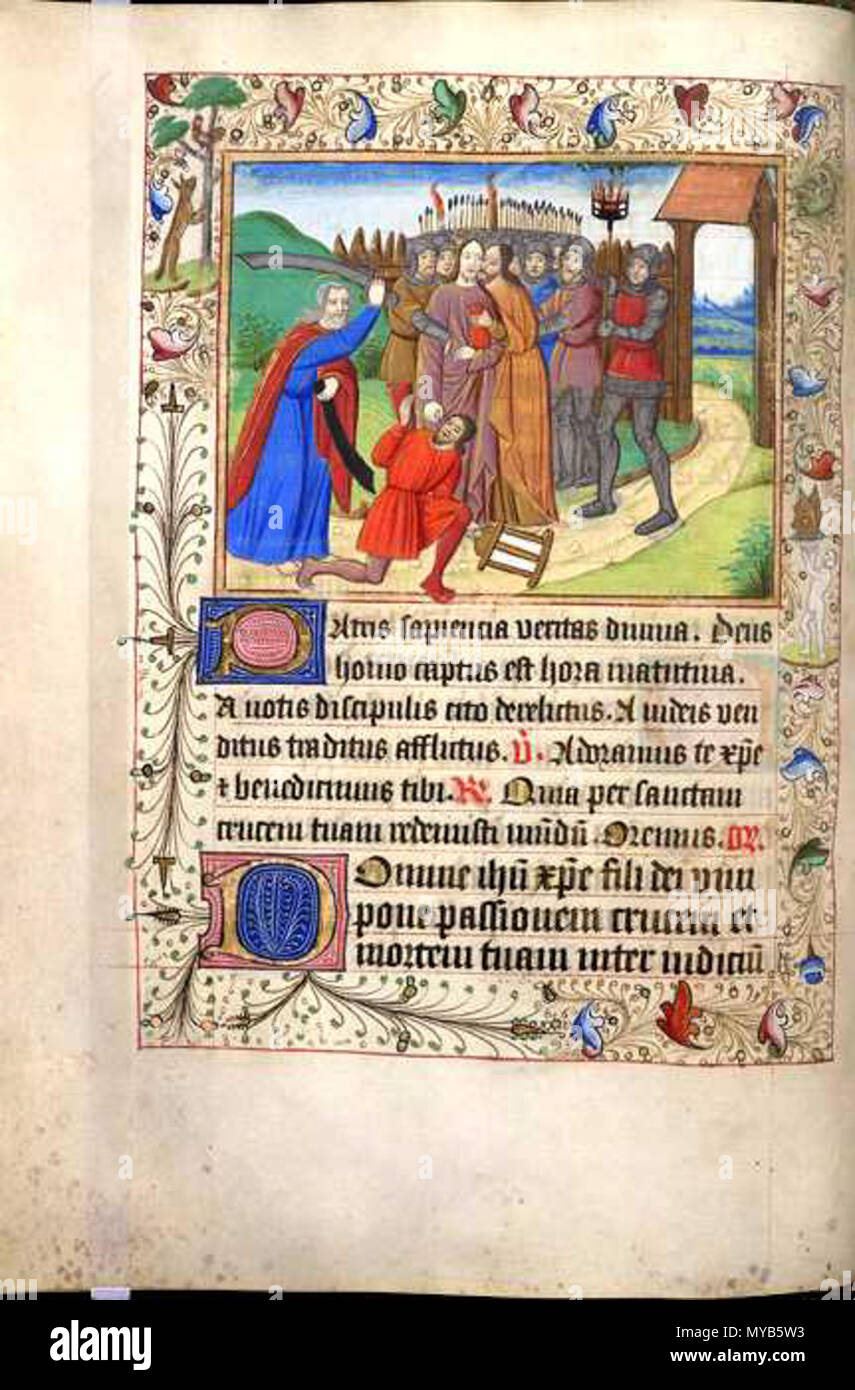 Patris sapiencia veritas diuina. Deus
homo captus est hora matutina.
A notis discipulis cito derelictus. A iudeis ven
ditus traditus afflictus. V̄. Adoramus te xp̄e
⁊ benedicimus tibi. R̄. Quia per sanctam
crucem tuam redemisti mūdū. Oremus. or̄.
Domine ihū xp̄e fili dei viui
pone passionem crucem et
mortem tuam inter iudiciū
alamy
Image ID: MYB5W3
www.alamy.com